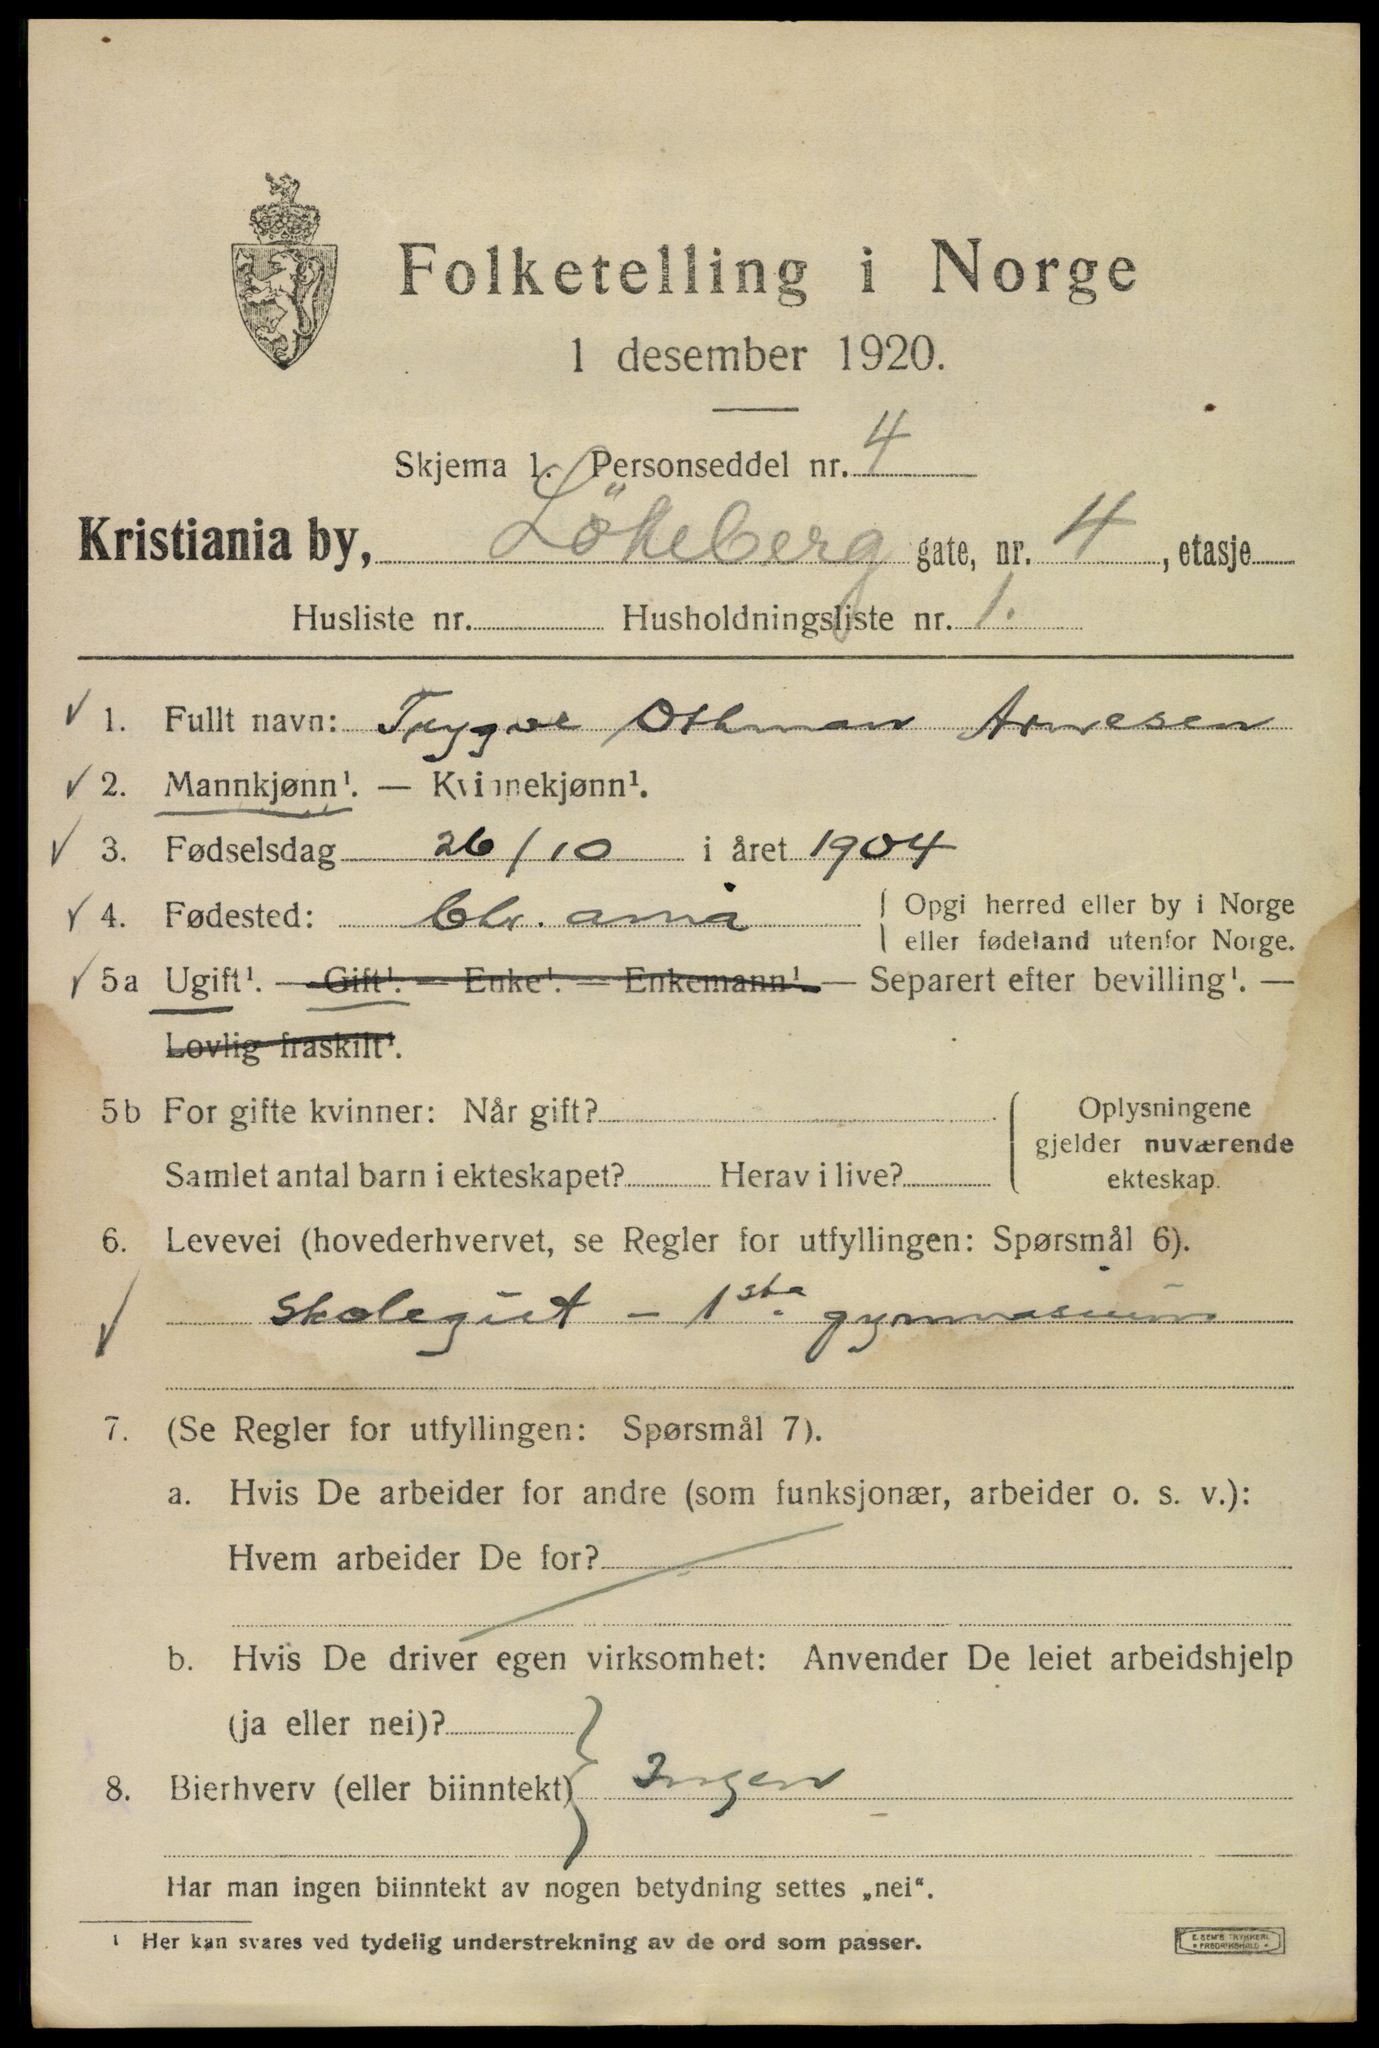 Folketelling i Norge
1 desember 1920.
Skjema 1. Personseddel nr. 4
Kristiania by, Lökeberg gate, nr. 4, etasje
Husliste nr. Husholdningsliste nr. 1.
1. Fullt navn: Trygve Othman Arnesen
2. Mannkjønn¹. — Kvinnekjønn¹.
3. Fødselsdag 26/10 i året 1904
4. Fødested: Chr. ania { Opgi herred eller by i Norge
eller fødeland utenfor Norge.
5a Ugift¹. — Gift¹. — Enke¹. — Enkemann¹. — Separert efter bevilling¹. —
Lovlig fraskilt¹.
5b For gifte kvinner: Når gift? { Oplysningene
gjelder nuværende
Samlet antal barn i ekteskapet? Herav i live? ekteskap.
6. Levevei (hovederhvervet, se Regler for utfyllingen: Spørsmål 6).
Skolegut - 1ste gymnasium
7. (Se Regler for utfyllingen: Spørsmål 7).
a. Hvis De arbeider for andre (som funksjonær, arbeider o. s. v.):
Hvem arbeider De for?
b. Hvis De driver egen virksomhet: Anvender De leiet arbeidshjelp
(ja eller nei)?
8. Bierhverv (eller biinntekt) } Ingen
Har man ingen biinntekt av nogen betydning settes „nei“.
¹ Her kan svares ved tydelig understrekning av de ord som passer.
E. SEM'S TRYKKERI
* FREDRIKSHALD *